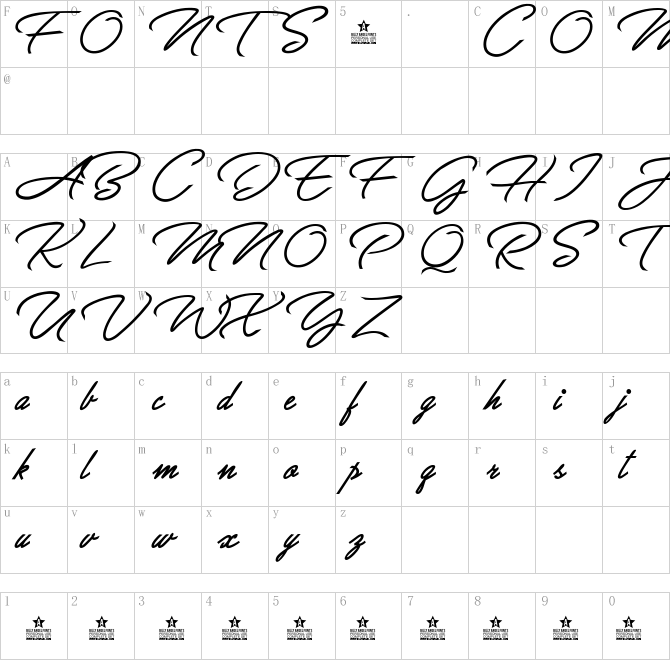 F O N T S 5 . C O M
F O N T S C O M
@
A B C D E F G H I J
A B C D E F G H I J
K L M N O P Q R S T
K L M N O P Q R S T
U V W X Y Z
U V W X Y Z
a b c d e f g h i j
a b c d e f g h i j
k l m n o p q r s t
k l m n o p q r s t
u v w x y z
u v w x y z
1 2 3 4 5 6 7 8 9 0